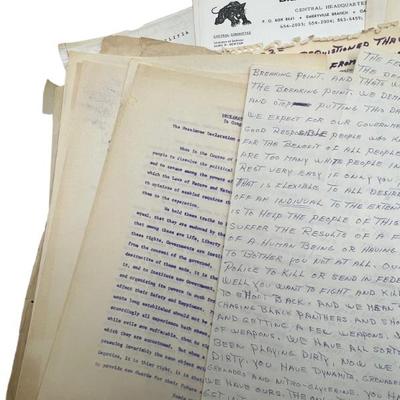 CENTRAL HEADQUARTE
P. O. BOX 8641 - EMERYVILLE BRANCH - OA
CENTRAL COMMITTEE
HUEY P. NEWTON
REQUISITIONED THRU
FROM
DECLARAT
In Cong
The Unanimous Declaration
When in the Course of
people to dissolve the political
and to assume among the powers of
which the Laws of Nature and Natur
to opinions of mankind requires
the separation.
We hold these truths to
equal, that they are endowed by the
among these are Life, Liberty
these rights, Governments are institu
from the consent of the governed
destructive of these ends, it is the
and to institute new Government
and organizing its powers in such form
effect their Safety and Happiness.
ments long established should not
accordingly all experience hath shewn
while evils are sufferable, than to
which they are accustomed. But when
pursuing invariably the same object
Despotism, it is their right, it is their
to provide new Guards for their future
THE FE
THE DEC
BREAKING POINT. AND THAT
THE BREAKING POINT. WE DEMA
AND STOP PUTTING THIS DA
WE EXPECT FOR OUR GOVERNME
GOOD RESPONSIBLE PEOPLE WHO
FOR THE BENEFIT OF ALL PEOPLE
ARE TOO MANY WHITE PEOPLE IN
REST VERY EASY IF ONLY YOU
THAT IS FLEXIBLE TO ALL DESIRE
OFF AN INDIVIDUAL TO THE EXTENT
IS TO HELP THE PEOPLE OF THIS
SUFFER THE RESULTS OF A F
OF A HUMAN BEING OR HAVING
TO BOTHER YOU NOT AT ALL. OU
POLICE TO KILL OR SEND IN FEDE
WELL YOU WANT TO FIGHT AND KILL
TO SHOOT BACK. AND WE MEAN
CHASING BLACK PANTHERS AND SHO
AND GETTING A FEW WEAPONS.
OF WEAPONS. WE HAVE ALL SORTS
BEEN PLAYING DIRTY, NOW WE
DIRTY. YOU HAVE DYNAMITE, GRENADE
GRENADES AND NITRO-GLYCERINE. YOU HA
WE HAVE OURS. THE ON